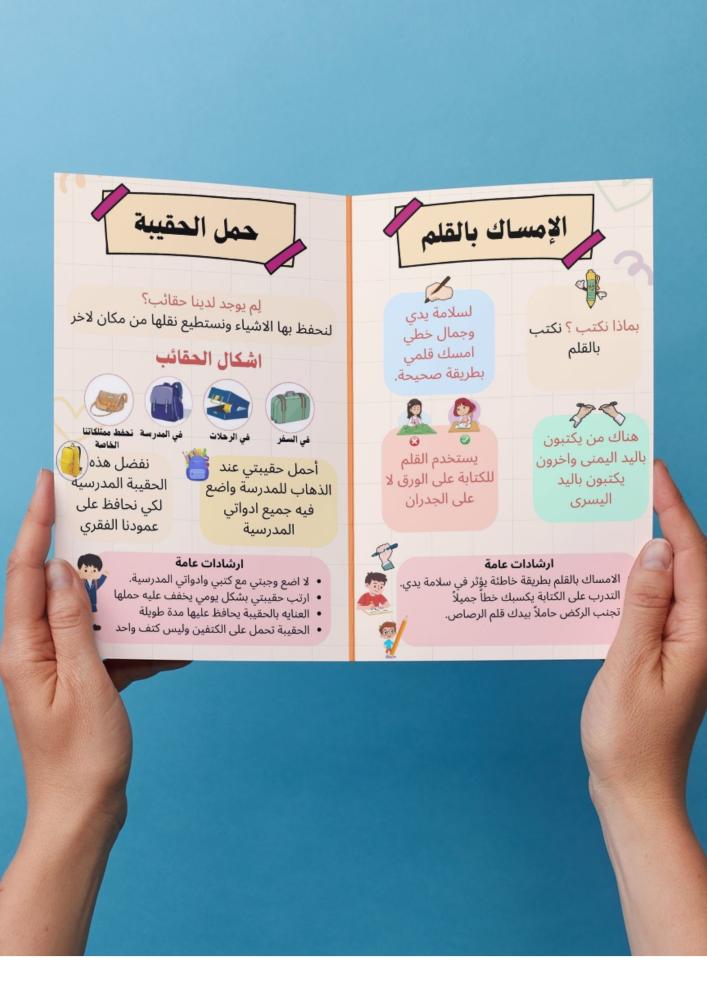 الإمساك بالقلم
بماذا نكتب ؟ نكتب
بالقلم
لسلامة يدي
وجمال خطي
امسك قلمي
بطريقة صحيحة.
هناك من يكتبون
باليد اليمنى واخرون
يكتبون باليد
اليسرى
يستخدم القلم
للكتابة على الورق لا
على الجدران
ارشادات عامة
الامساك بالقلم بطريقة خاطئة يؤثر في سلامة يدي.
التدرب على الكتابة يكسبك خطاً جميلاً
تجنب الركض حاملاً بيدك قلم الرصاص.
حمل الحقيبة
لِم يوجد لدينا حقائب؟
لنحفظ بها الاشياء ونستطيع نقلها من مكان لاخر
اشكال الحقائب
في السفر
في الرحلات
في المدرسة
نحفظ ممتلكاتنا
الخاصة
أحمل حقيبتي عند
الذهاب للمدرسة واضع
فيه جميع ادواتي
المدرسية
نفضل هذه
الحقيبة المدرسية
لكي نحافظ على
عمودنا الفقري
ارشادات عامة
• لا اضع وجبتي مع كتبي وادواتي المدرسية.
• ارتب حقيبتي بشكل يومي يخفف عليه حملها
• العنايه بالحقيبة يحافظ عليها مدة طويلة
• الحقيبة تحمل على الكتفين وليس كتف واحد